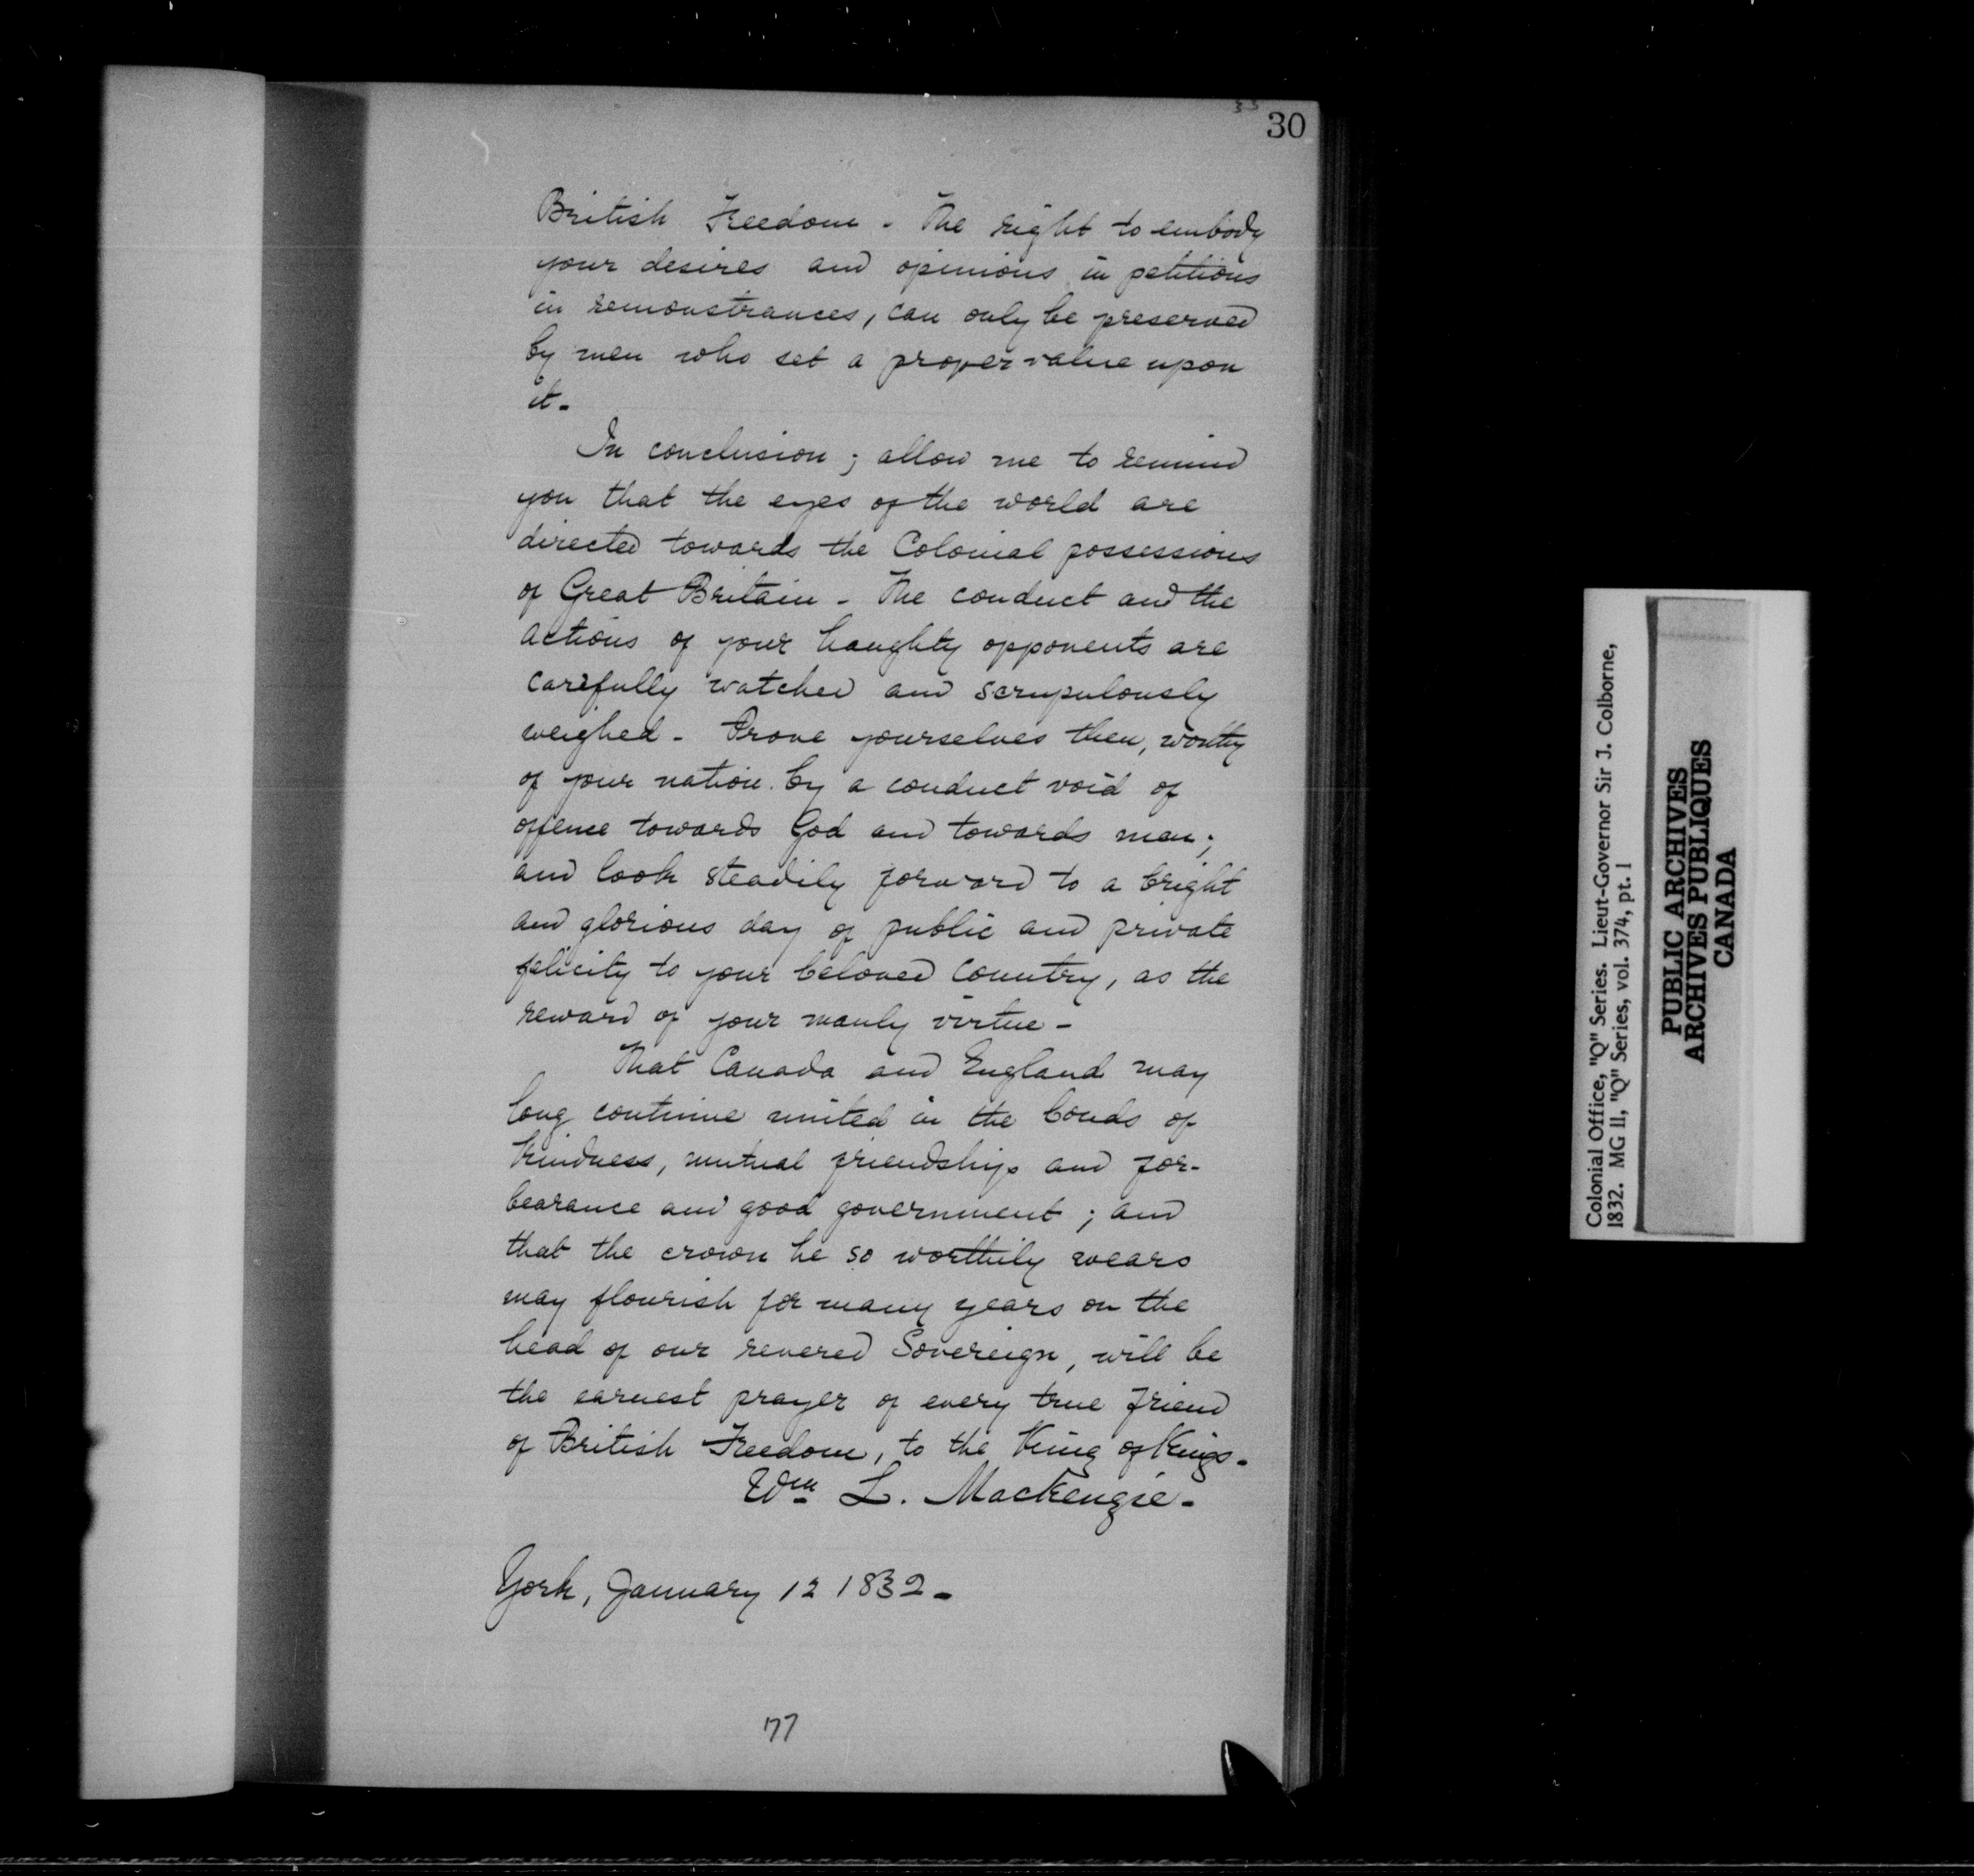 30
British Freedom - The right to embody
your desires and opinions in petitions
in remonstrances, can only be preserved
by men who set a proper value upon
it -
In conclusion; allow me to remind
you that the eyes of the world are
directed towards the Colonial possessions
of Great Britain - The conduct and the
actions of your haughty opponents are
carefully watched and scrupulously
weighed - Prove yourselves then, worthy
of your nation by a conduct void of
offence towards God and towards man;
and look steadily forward to a bright
and glorious day of public and private
felicity to your beloved country, as the
reward of your manly virtue -
That Canada and England may
long continue united in the bonds of
kindness, mutual friendship and for-
bearance and good government; and
that the crown he so worthily wears
may flourish for many years on the
head of our revered Sovereign, will be
the earnest prayer of every true friend
of British Freedom, to the King of Kings -
Wm L. Mackenzie -
York, January 12 1832 -
77
Colonial Office, "Q" Series. Lieut-Governor Sir J. Colborne,
1832. MG 11, "Q" Series, vol. 374, pt. 1
PUBLIC ARCHIVES
ARCHIVES PUBLIQUES
CANADA